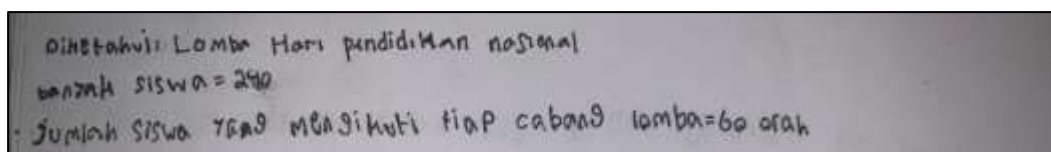 Diketahui: Lomba Hari pendidikan nasional
banyak siswa = 240
Jumlah siswa yang mengikuti tiap cabang lomba = 60 orah